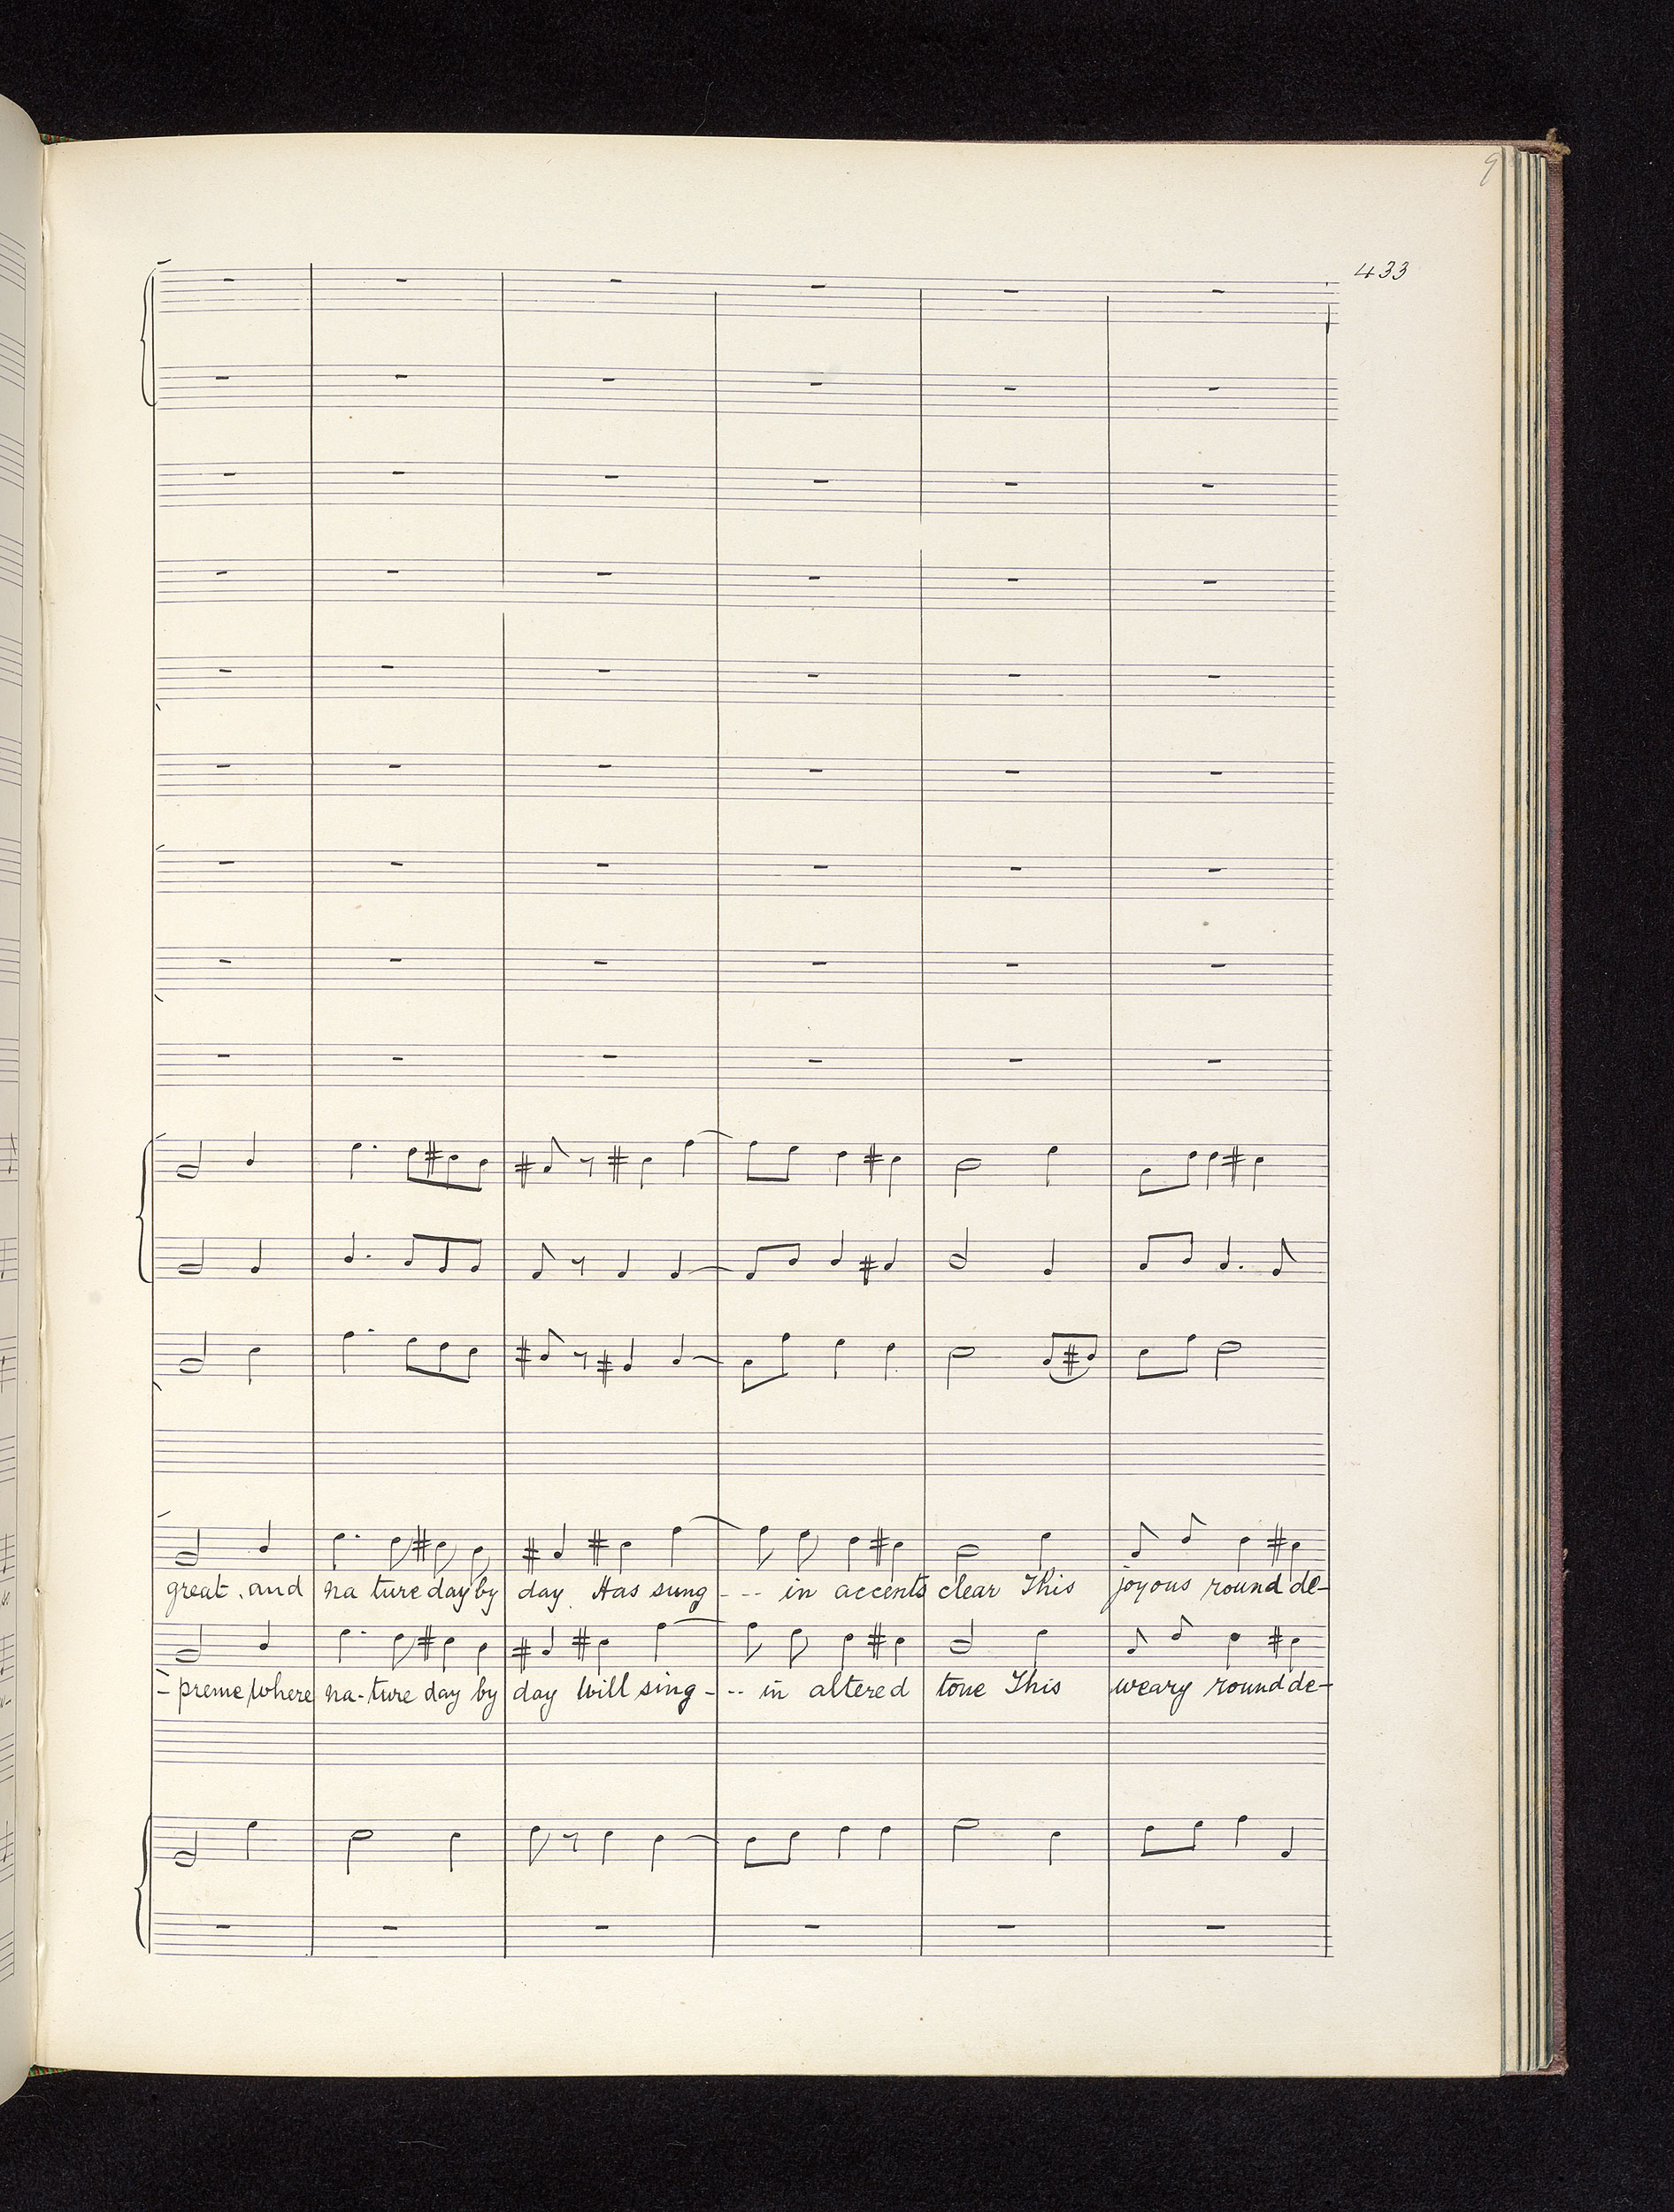 9
433
great. and na ture day by day. Has sung - - - in accents clear This joyous round de-
- preme where na-ture day by day Will sing - - - in altered tone This weary round de-